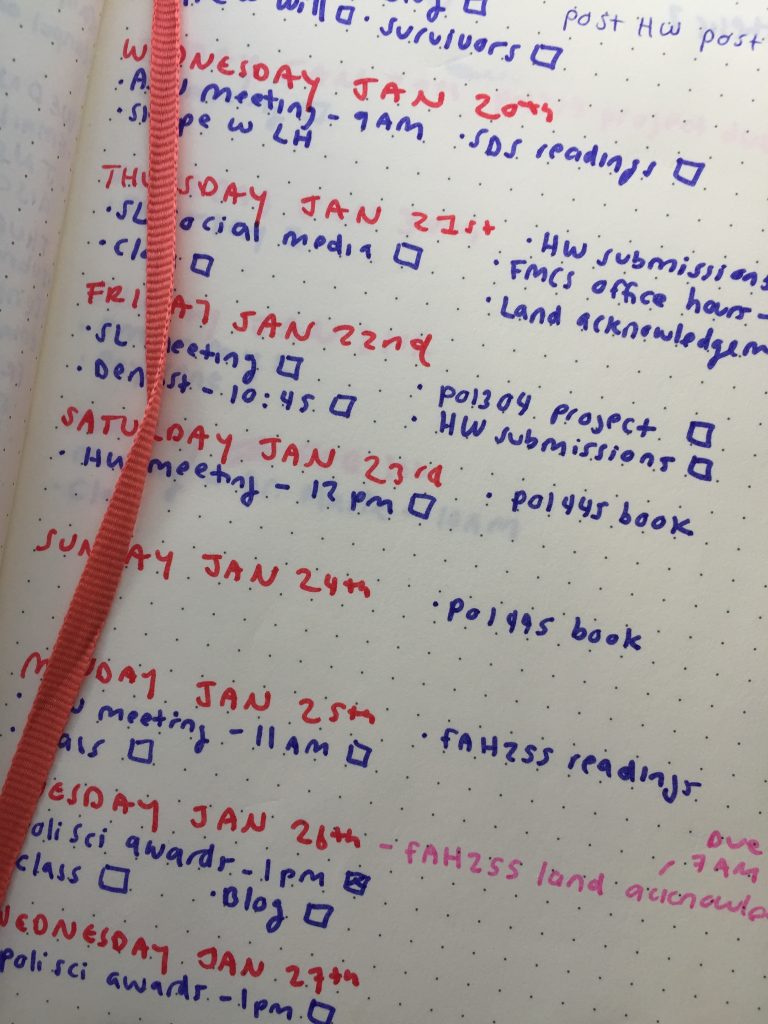 will • survivors
post HW post
WEDNESDAY JAN 20th
meeting - 9AM • SDS readings
w LH
THURSDAY JAN 21st
• SL social media • HW submissions
• FMCS office hours -
• Land acknowledgem
FRIDAY JAN 22nd
• SL meeting • pol304 project
• Dentist - 10:45 • HW submissions
SATURDAY JAN 23rd
• HW meeting - 12pm • pol445 book
SUNDAY JAN 24th
• pol445 book
MONDAY JAN 25th
meeting - 11AM • FAH255 readings
TUESDAY JAN 26th - FAH255 land acknowle
Due
7AM
poli sci awards - 1pm
class • Blog
WEDNESDAY JAN 27th
poli sci awards - 1pm